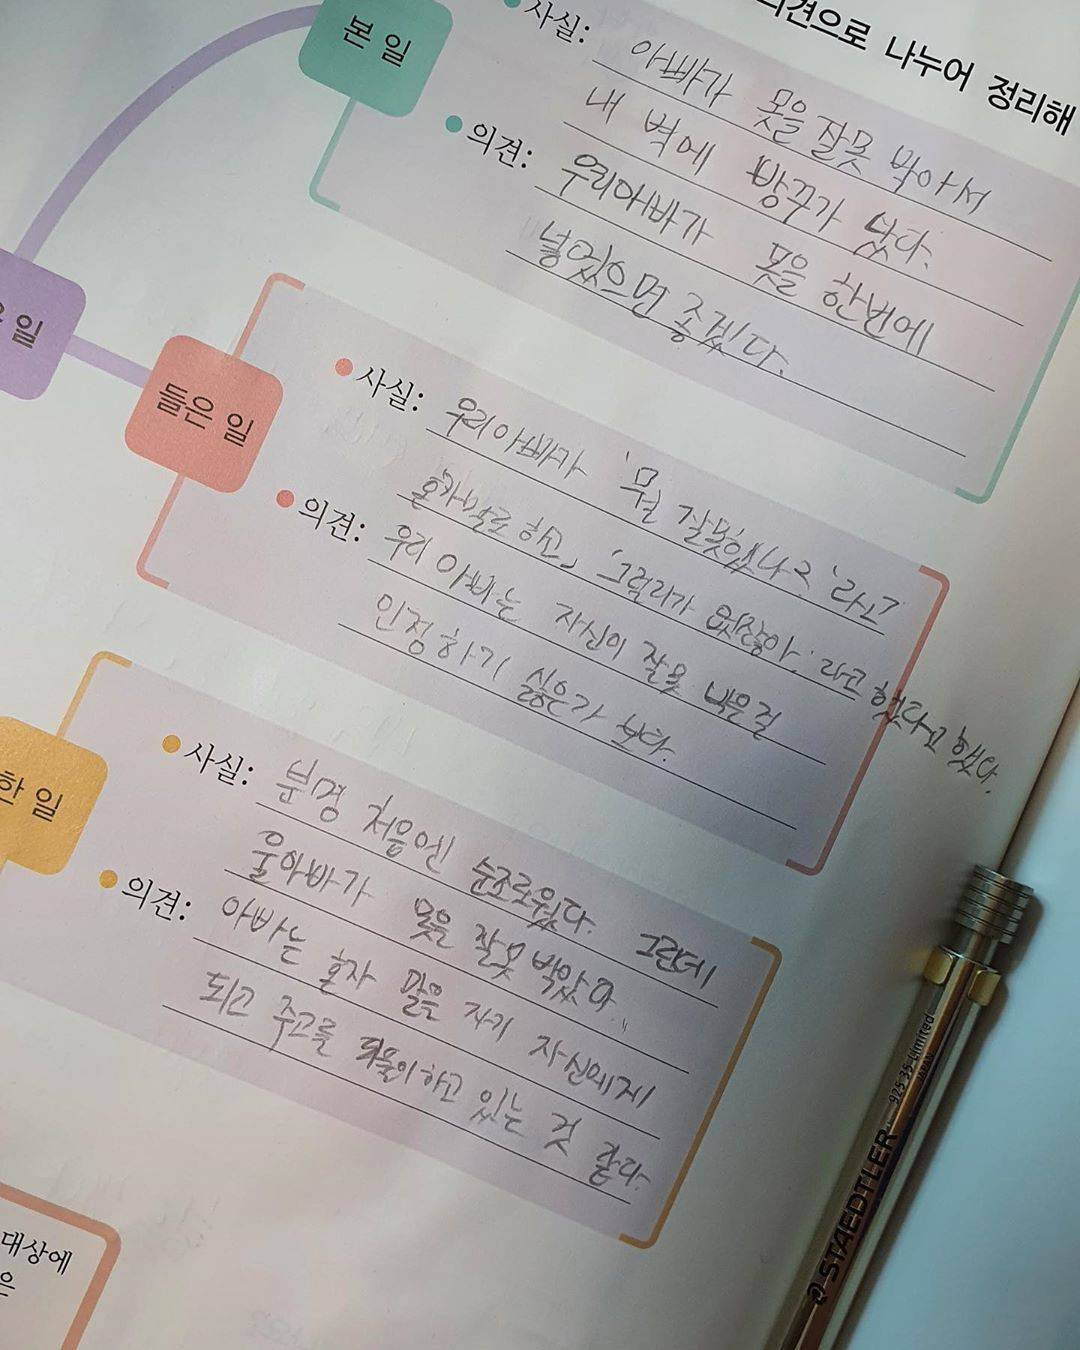 의견으로 나누어 정리해
본 일
사실: 아빠가 못을 잘못 박아서
내 벽에 빵꾸가 났다.
의견: 우리아빠가 못을 한번에
넣었으면 좋겠다.
일
들은 일
사실: 우리아빠가 '뭘 잘못했나? '라고
혼잣말로 하고」 '그럴리가 없잖아.' 라고 했다고 했다.
의견: 우리 아빠는 자신이 잘못 박은걸
인정하기 싫은가 보다.
한 일
사실: 분명 처음엔 순조로웠다. 그런데
울아빠가 못을 잘못 박았다.
의견: 아빠는 혼자 말을 자기 자신에게
되고 주고를 되풀이하고 있는 것 같다.
대상에
은
STAEDTLER 925 35 Limited
JAPAN